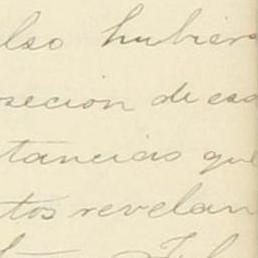 also hubier
seccion de esa
tancias que
tos revelan